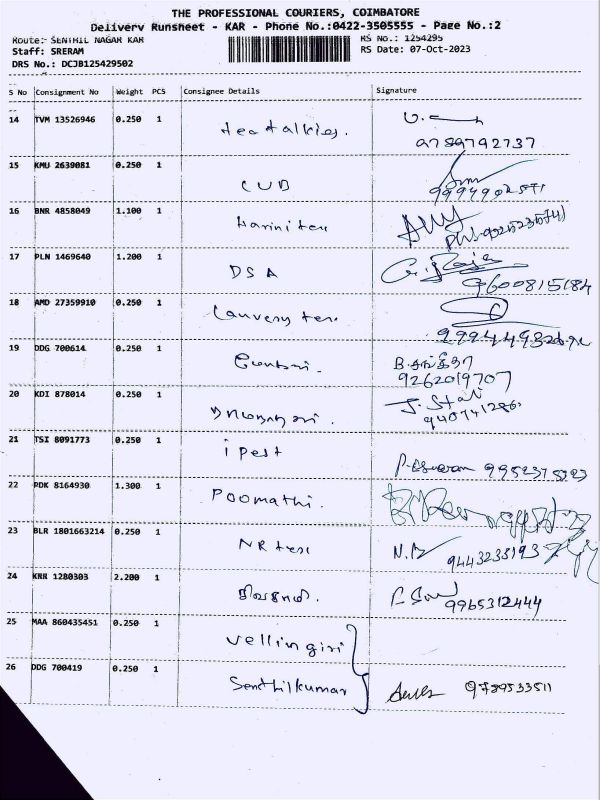 THE PROFESSIONAL COURIERS, COIMBATORE
Delivery Runsheet - KAR - Phone No.:0422-3505555 - Page No.:2
Route:- SENTHIL NAGAR KAR
RS No.: 1254295
Staff: SRERAM
RS Date: 07-Oct-2023
DRS No.: DCJB125429502
S No Consignment No Weight PCS Consignee Details Signature
14 TVM 13526946 0.250 1
teatalkies.
9789792737
15 KMU 2639081 0.250 1
CUB
16 BNR 4858049 1.100 1
Harini tex
17 PLN 1469640 1.200 1
DSA
G. Raja
9600815184
18 AMD 27359910 0.250 1
Cauvery tex
19 DDG 700614 0.250 1
B. சங்கீதா
9262019707
20 KDI 878014 0.250 1
21 TSI 8091773 0.250 1
i pest
P. Eswaran
22 PDK 8164930 1.300 1
Poomathi.
23 BLR 1801663214 0.250 1
NR tex
9443233193
24 KNR 1280303 2.200 1
9965312444
25 MAA 860435451 0.250 1
Vellingiri
26 DDG 700419 0.250 1
Senthilkumar
9789533511